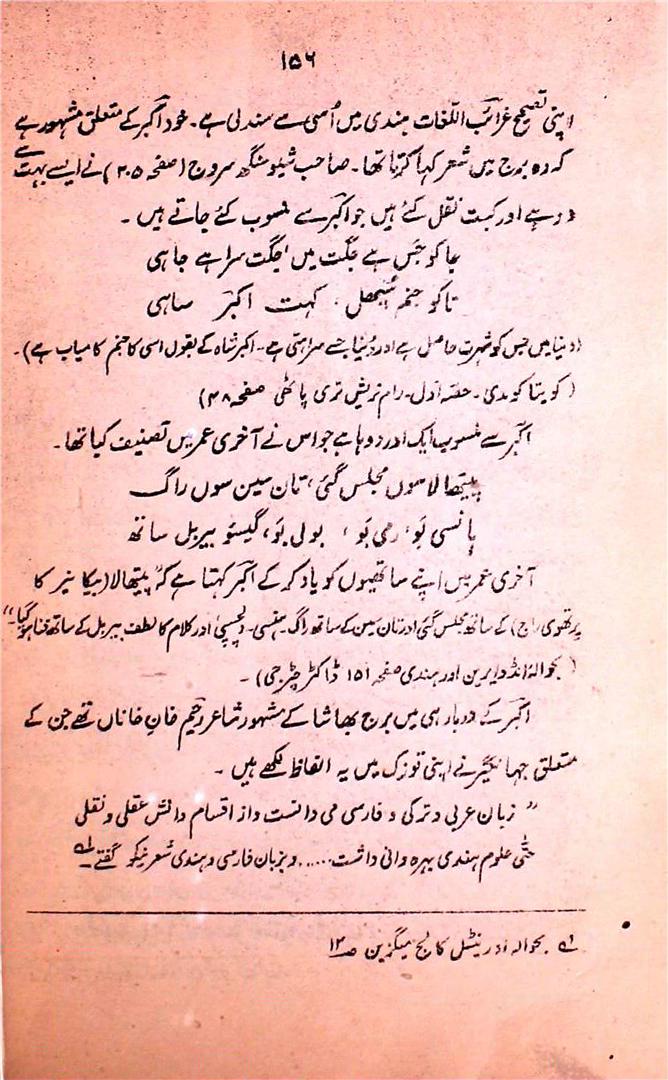 ۱۵۶
اپنی تصحیح غرائب اللغات ہندی میں اُسی سے سند لی ہے۔ خود اکبر کے متعلق مشہور ہے
کہ وہ برج میں شعر کہا کرتا تھا۔ صاحب شیو سنگھ سروج (صفحہ ۲۰۵) نے ایسے بہت سے
دوہے اور کبت نقل کئے ہیں جو اکبر سے منسوب کئے جاتے ہیں۔
جا کو جَس ہے جگت میں، جگت سراہے جاہی
تا کو جنم سُپھل، کہت اکبر ساہی
(دنیا میں جس کو شہرت حاصل ہے اور دُنیا جسے سراہتی ہے۔ اکبر شاہ کے بقول اسی کا جنم کامیاب ہے)۔
(کویتا کومدی۔ حصہ اول۔ رام نریش تری پاٹھی صفحہ ۴۸)
اکبر سے منسوب ایک اور دوہا ہے جو اس نے آخری عمر میں تصنیف کیا تھا۔
پیتھالا سوں مجلس گئی، تان سین سوں راگ
ہانسی بَو، رمی بَو، بولی بَو، گیئو بیربل ساتھ
آخری عمر میں اپنے ساتھیوں کو یاد کر کے اکبر کہتا ہے کہ ”پیتھالا (بیکانیر کا
پرتھوی راج) کے ساتھ مجلس گئی اور تان سین کے ساتھ راگ۔ ہنسی۔ دلچسپی اور کلام کا لطف بیربل کے ساتھ فنا ہو گیا۔“
(بحوالہ انڈو ایرین اور ہندی صفحہ ۱۵۱ ڈاکٹر چٹرجی)۔
اکبر کے دربار ہی میں برج بھاشا کے مشہور شاعر رحیم خانِ خاناں تھے جن کے
متعلق جہانگیر نے اپنی توزک میں یہ الفاظ لکھے ہیں۔
”زبان عربی و ترکی و فارسی می دانست و از اقسام دانش عقلی و نقلی
حتٰی علوم ہندی بہرہ وانی داشت ..... و بزبان فارسی و ہندی شعر نیکو گفتے لہ
لہ بحوالہ اورینٹل کالج میگزین صـ ۱۲